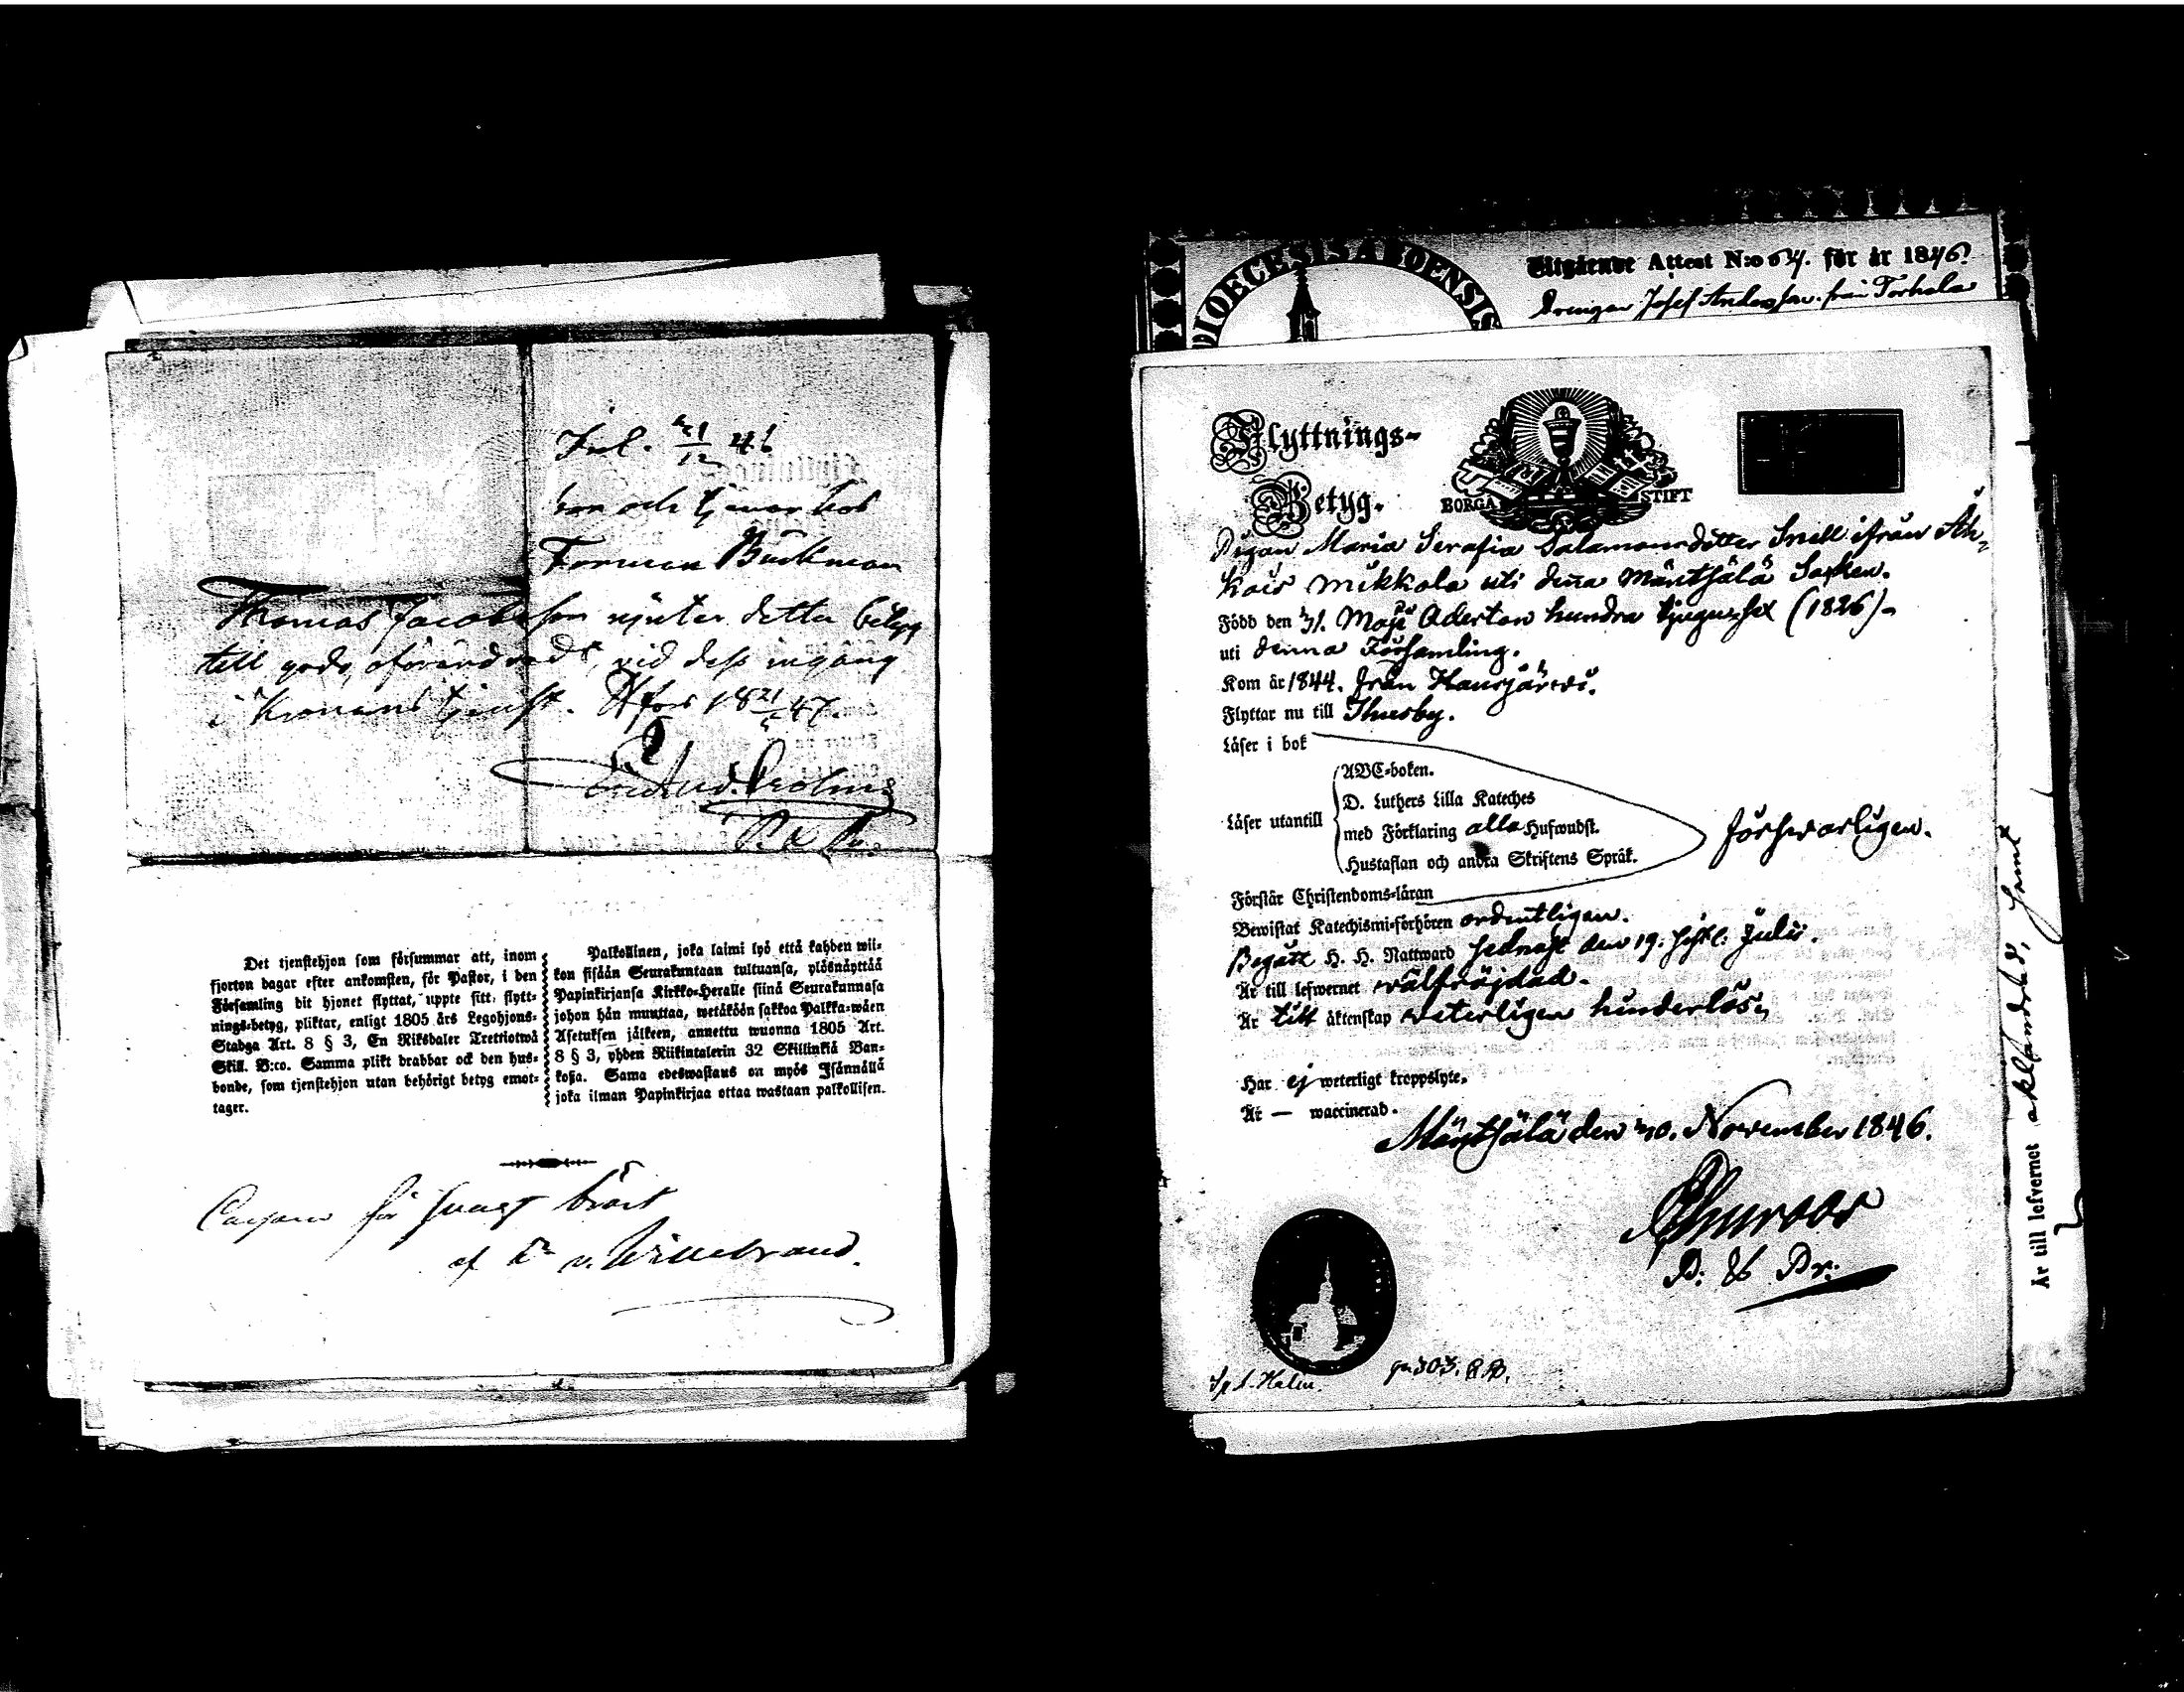 Inl. 21/12 46
och tjenar hos
Forman Buckman
Thomas Jacobsson njuter detta betyg
till godo, oförändradt, vid dess ingång
i Kronans tjenst. Hfors 18 21/ 47.
Det tjenstehjon som försummar att, inom
fjorton dagar efter ankomsten, för Pastor, i den
Församling dit hjonet flyttat, uppte sitt flytt-
nings-betyg, pliktar, enligt 1805 års Legohjons-
Stadga Art. 8 § 3, En Riksdaler Trettiotwå
Skill. B:co. Samma plikt drabbar ock den hus-
bonde, som tjenstehjon utan behörigt betyg emot-
tager.
Palkollinen, joka laimi lyö että kahden wii-
kon sisään Seurakuntaan tultuansa, ylösnäyttää
Papinkirjansa Kirkko-Heralle siinä Seurakunnasa
johon hän muuttaa, wetäköön sakkoa Palkka-wäen
Asetuksen jälkeen, annettu wuonna 1805 Art.
8 § 3, yhden Riikintalerin 32 Skillinkiä Ban-
kosa. Sama edeswastaus on myös Isännällä
joka ilman Papinkirjaa ottaa wastaan palkollisen.
för
af v. Willebrand.
DIOECESIS ABOENSIS
Utgående Attest N:o 64. för år 1846.
Drengen Josef Andersson från Torhola
Flyttnings-
Betyg.
BORGÅ STIFT
Pigan Maria Serafia Salamonsdotter Snell ifrån An-
kois Mikkola uti denna Mäntsälä Socken.
Född den 31. Maji Aderton hundra tjugu sex (1826)
uti denna Församling.
Kom år 1844. från Hausjärwi.
Flyttar nu till Thusby.
Läser i bok
Läser utantill
ABC-boken.
D. Luthers Lilla Kateches
med Förklaring alla Hufwudst.
Hustaflan och andra Skriftens Språk.
försvarligen.
Förstår Christendoms-läran
Bewistat Katechismi-förhören ordentligen.
Begått H. H. Nattward sednast den 19. sistl. Julii.
Är till lefwernet wälfräjdad.
Är till äktenskap veterligen hinderlös.
Har ej weterligt kroppslyte.
Är — waccinerad.
Mäntsälä den 30. November 1846.
P: & Pr:
Är till lefvernet oklandrad, samt